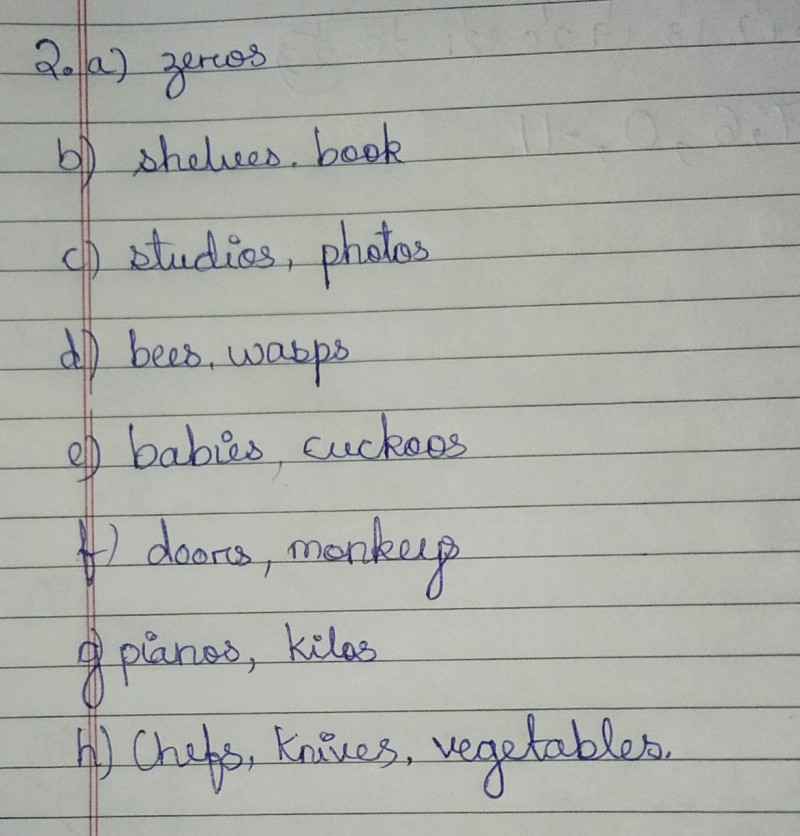 2. a) zeros
b) shelves. book
c) studios, photos
d) bees, wasps
e) babies, cuckoos
f) doors, monkeys
g) pianos, kilos
h) Chefs, knives, vegetables.